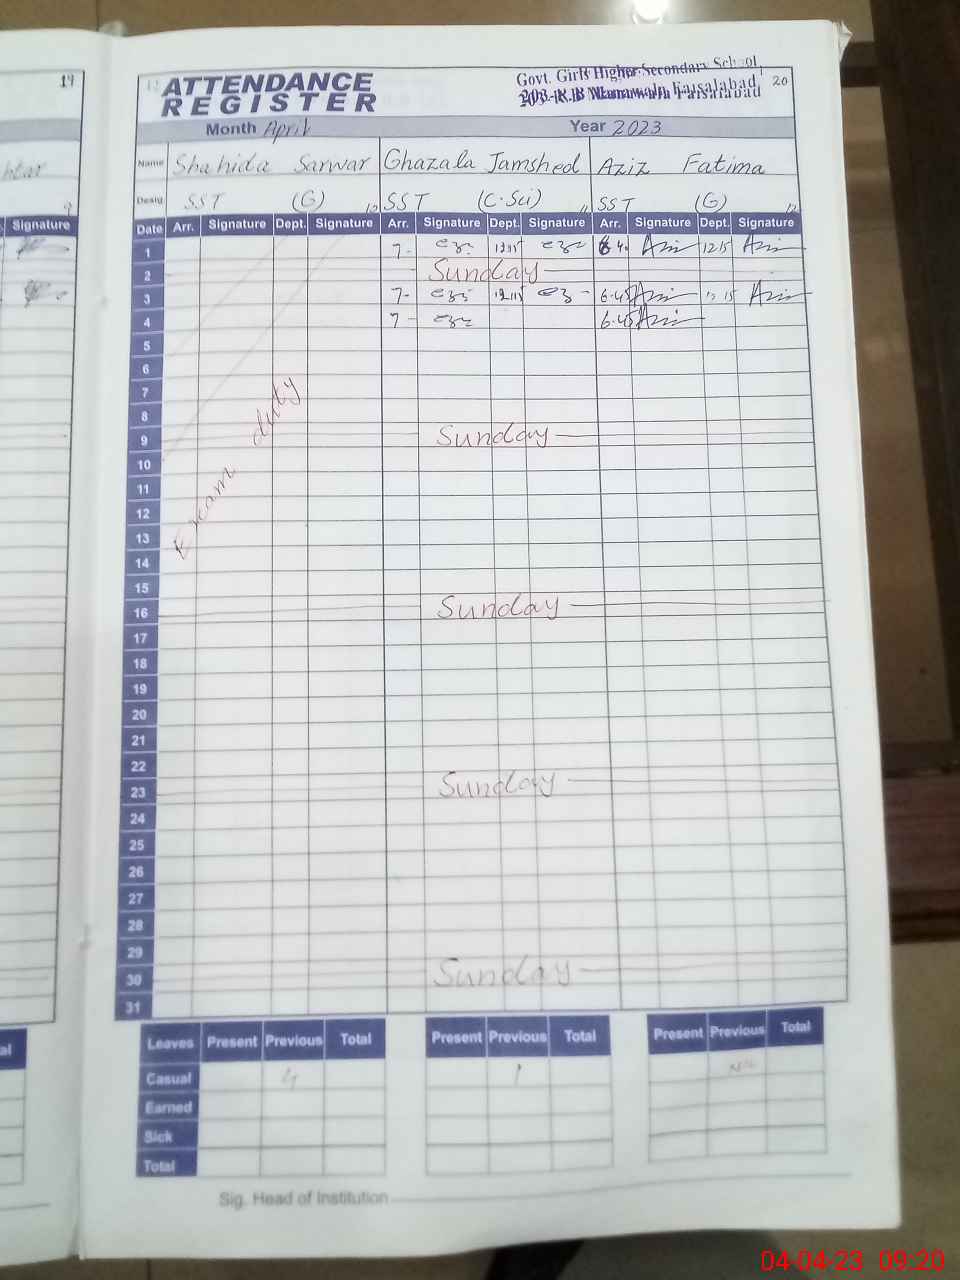 19
ATTENDANCE
REGISTER
Govt. Girls Higher Secondary School
20
Month April
Year 2023
Name Shahida Sarwar Ghazala Jamshed Aziz Fatima
Desig. SST (G) 10 SST (C.Sci) 11 SST (G) 12
Signature
Date Arr. Signature Dept. Signature Arr. Signature Dept. Signature Arr. Signature Dept. Signature
1 7- 12:15 12 15
2 Sunday
3 7- 12:15 6.45 12 15
4 7- 6.45
5
6
7
8
9 Sunday
10
11
12
13
Exam duty
14
15
16 Sunday
17
18
19
20
21
22
23 Sunday
24
25
26
27
28
29
30 Sunday
31
Leaves Present Previous Total Present Previous Total Present Previous Total
Casual 4 1 Nil
Earned
Sick
Total
Sig. Head of Institution
04-04-23 09:20